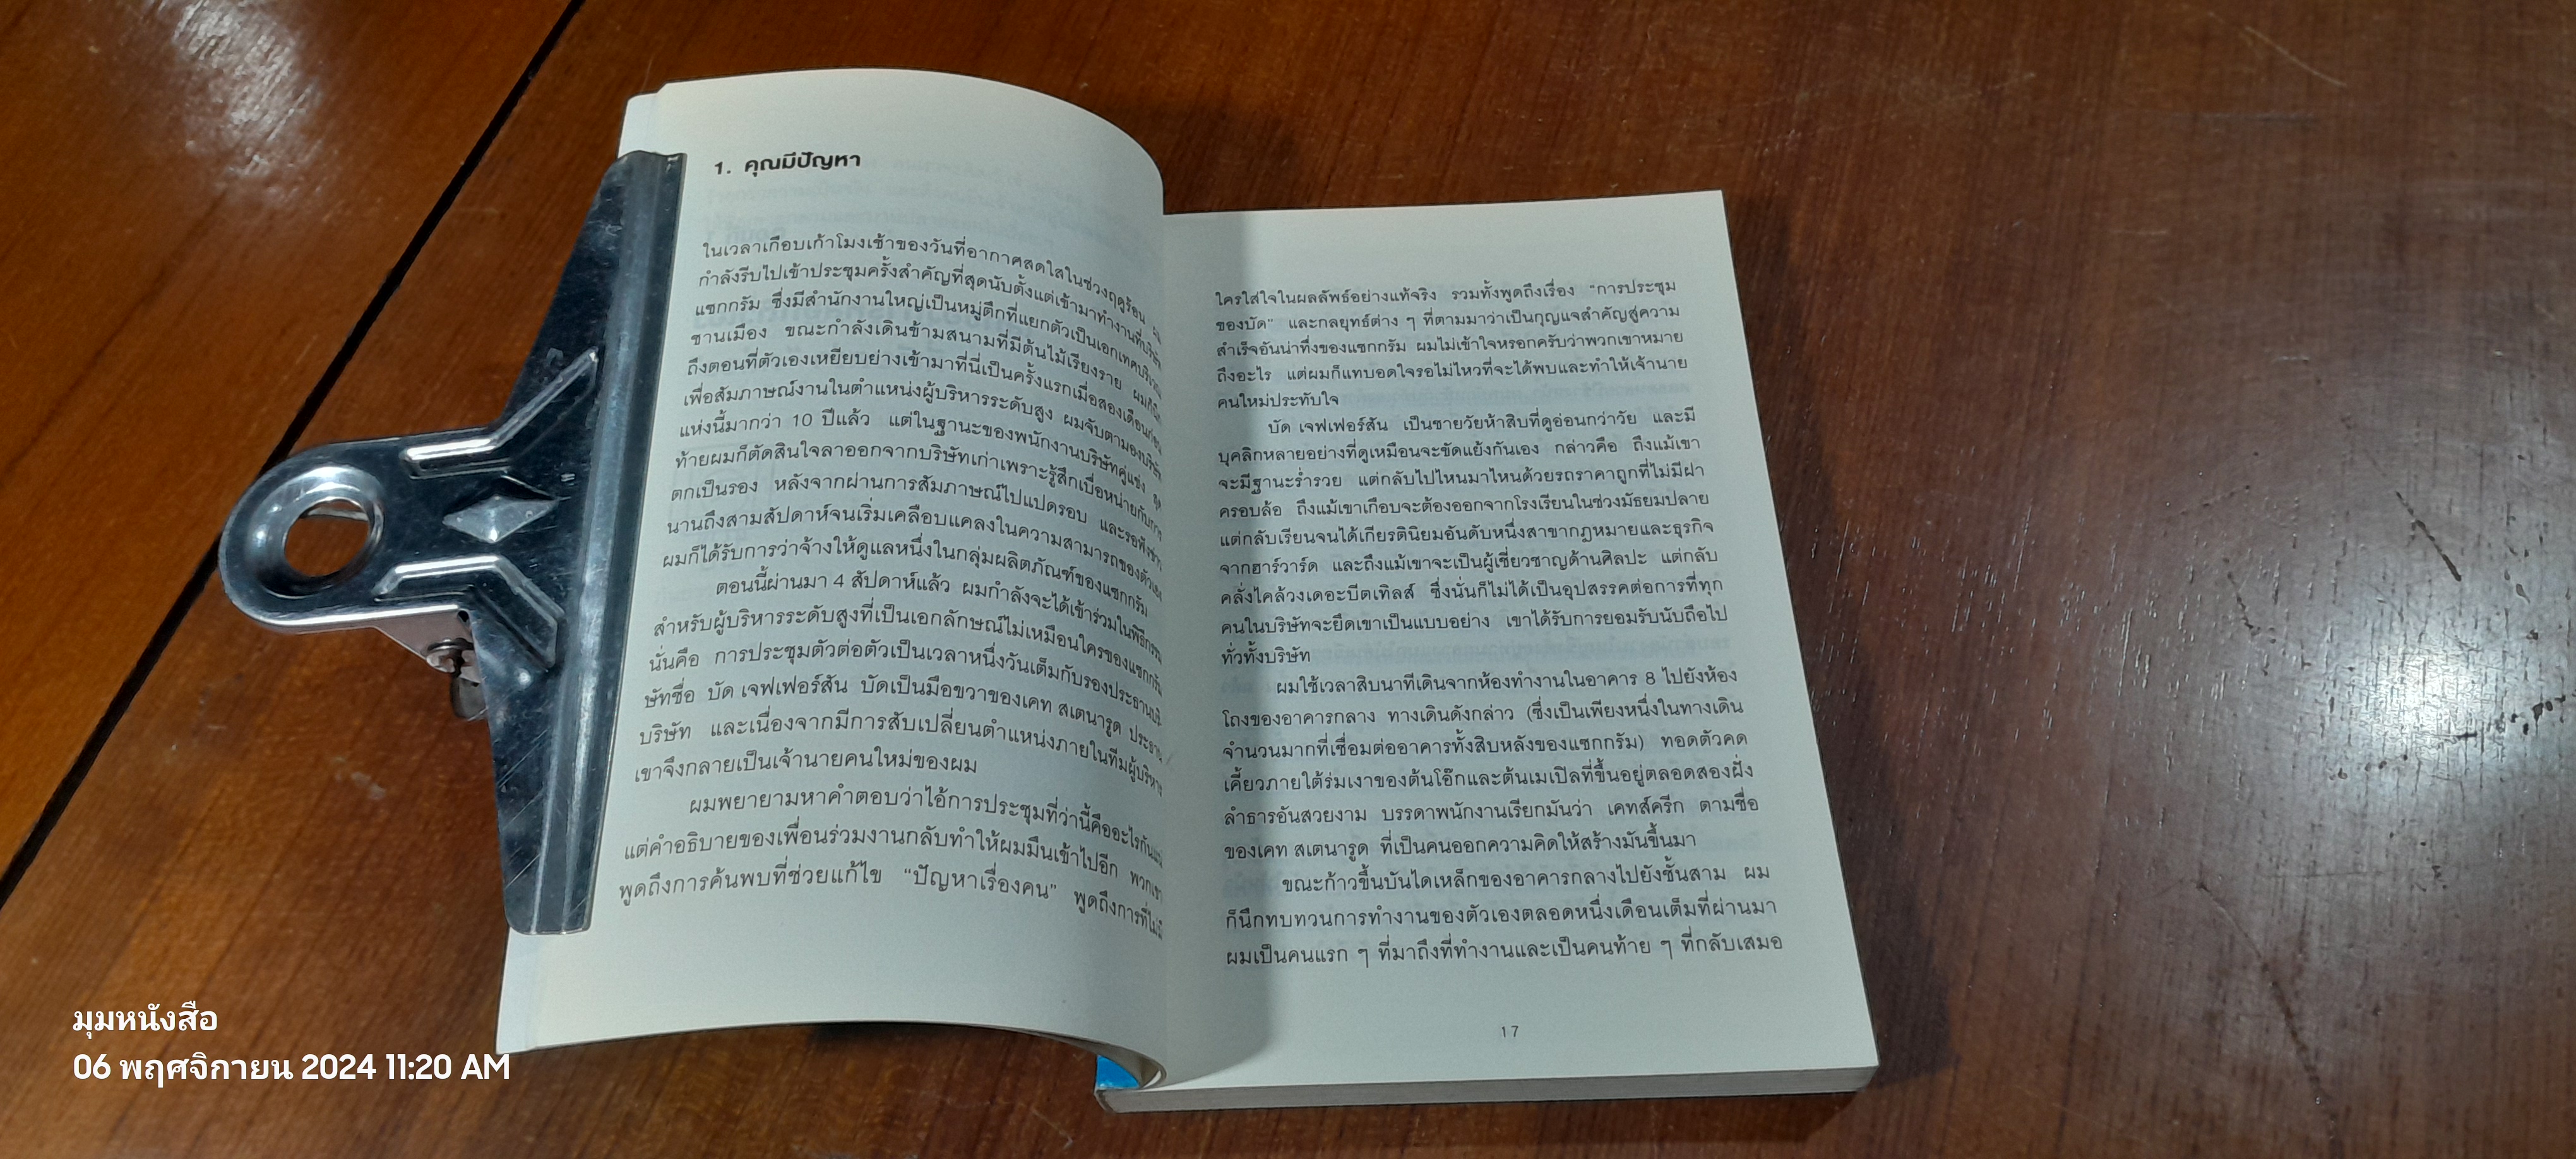 1. คุณมีปัญหา
ในเวลาเกือบเก้าโมงเช้าของวันที่อากาศสดใสในช่วงฤดูร้อน
กำลังรีบไปเข้าประชุมครั้งสำคัญที่สุดนับตั้งแต่เข้ามาทำงานที่บริษัท
แซกกรัม ซึ่งมีสำนักงานใหญ่เป็นหมู่ตึกที่แยกตัวเป็นเอกเทศบริเวณ
ชานเมือง ขณะกำลังเดินข้ามสนามที่มีต้นไม้เรียงราย ผมก็นึก
ถึงตอนที่ตัวเองเหยียบย่างเข้ามาที่นี่เป็นครั้งแรกเมื่อสองเดือนก่อน
เพื่อสัมภาษณ์งานในตำแหน่งผู้บริหารระดับสูง ผมจับตามองบริษัท
แห่งนี้มากว่า 10 ปีแล้ว แต่ในฐานะของพนักงานบริษัทคู่แข่ง สุด
ท้ายผมก็ตัดสินใจลาออกจากบริษัทเก่าเพราะรู้สึกเบื่อหน่ายกับการ
ตกเป็นรอง หลังจากผ่านการสัมภาษณ์ไปแปดรอบ และรอฟังข่าว
นานถึงสามสัปดาห์จนเริ่มเคลือบแคลงในความสามารถของตัวเอง
ผมก็ได้รับการว่าจ้างให้ดูแลหนึ่งในกลุ่มผลิตภัณฑ์ของแซกกรัม
ตอนนี้ผ่านมา 4 สัปดาห์แล้ว ผมกำลังจะได้เข้าร่วมในพิธีกรรม
สำหรับผู้บริหารระดับสูงที่เป็นเอกลักษณ์ไม่เหมือนใครของแซกกรัม
นั่นคือ การประชุมตัวต่อตัวเป็นเวลาหนึ่งวันเต็มกับรองประธานบริ-
ษัทชื่อ บัด เจฟเฟอร์สัน บัดเป็นมือขวาของเคท สเตนารูด ประธาน
บริษัท และเนื่องจากมีการสับเปลี่ยนตำแหน่งภายในทีมผู้บริหาร
เขาจึงกลายเป็นเจ้านายคนใหม่ของผม
ผมพยายามหาคำตอบว่าไอ้การประชุมที่ว่านี้คืออะไรกันแน่
แต่คำอธิบายของเพื่อนร่วมงานกลับทำให้ผมมึนเข้าไปอีก พวกเขา
พูดถึงการค้นพบที่ช่วยแก้ไข “ปัญหาเรื่องคน” พูดถึงการที่ไม่มี
ใครใส่ใจในผลลัพธ์อย่างแท้จริง รวมทั้งพูดถึงเรื่อง “การประชุม
ของบัด” และกลยุทธ์ต่าง ๆ ที่ตามมาว่าเป็นกุญแจสำคัญสู่ความ
สำเร็จอันน่าทึ่งของแซกกรัม ผมไม่เข้าใจหรอกครับว่าพวกเขาหมาย
ถึงอะไร แต่ผมก็แทบอดใจรอไม่ไหวที่จะได้พบและทำให้เจ้านาย
คนใหม่ประทับใจ
บัด เจฟเฟอร์สัน เป็นชายวัยห้าสิบที่ดูอ่อนกว่าวัย และมี
บุคลิกหลายอย่างที่ดูเหมือนจะขัดแย้งกันเอง กล่าวคือ ถึงแม้เขา
จะมีฐานะร่ำรวย แต่กลับไปไหนมาไหนด้วยรถราคาถูกที่ไม่มีฝา
ครอบล้อ ถึงแม้เขาเกือบจะต้องออกจากโรงเรียนในช่วงมัธยมปลาย
แต่กลับเรียนจนได้เกียรตินิยมอันดับหนึ่งสาขากฎหมายและธุรกิจ
จากฮาร์วาร์ด และถึงแม้เขาจะเป็นผู้เชี่ยวชาญด้านศิลปะ แต่กลับ
คลั่งไคล้วงเดอะบีตเทิลส์ ซึ่งนั่นก็ไม่ได้เป็นอุปสรรคต่อการที่ทุก
คนในบริษัทจะยึดเขาเป็นแบบอย่าง เขาได้รับการยอมรับนับถือไป
ทั่วทั้งบริษัท
ผมใช้เวลาสิบนาทีเดินจากห้องทำงานในอาคาร 8 ไปยังห้อง
โถงของอาคารกลาง ทางเดินดังกล่าว (ซึ่งเป็นเพียงหนึ่งในทางเดิน
จำนวนมากที่เชื่อมต่ออาคารทั้งสิบหลังของแซกกรัม) ทอดตัวคด
เคี้ยวภายใต้ร่มเงาของต้นโอ๊กและต้นเมเปิลที่ขึ้นอยู่ตลอดสองฝั่ง
ลำธารอันสวยงาม บรรดาพนักงานเรียกมันว่า เคทส์ครีก ตามชื่อ
ของเคท สเตนารูด ที่เป็นคนออกความคิดให้สร้างมันขึ้นมา
ขณะก้าวขึ้นบันไดเหล็กของอาคารกลางไปยังชั้นสาม ผม
ก็นึกทบทวนการทำงานของตัวเองตลอดหนึ่งเดือนเต็มที่ผ่านมา
ผมเป็นคนแรก ๆ ที่มาถึงที่ทำงานและเป็นคนท้าย ๆ ที่กลับเสมอ
17
มุมหนังสือ
06 พฤศจิกายน 2024 11:20 AM